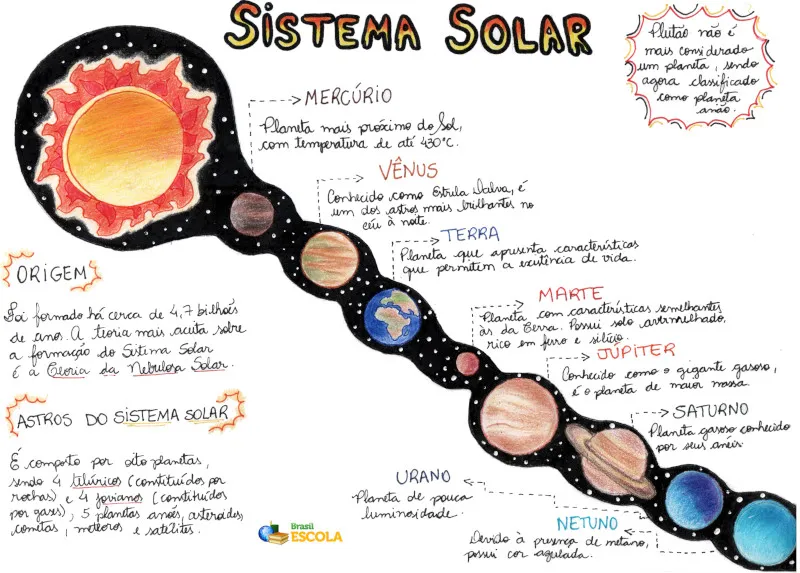 SISTEMA SOLAR
Plutão não é
mais considerado
um planeta, sendo
agora classificado
como planeta
anão.
MERCÚRIO
Planeta mais próximo do Sol,
com temperatura de até 430°C.
VÊNUS
Conhecido como Estrela Dalva, é
um dos astros mais brilhantes no
céu à noite.
TERRA
Planeta que apresenta características
que permitem a existência de vida.
MARTE
Planeta com características semelhantes
às da Terra. Possui solo avermelhado,
rico em ferro e silício.
JÚPITER
Conhecido como o gigante gasoso,
é o planeta de maior massa.
SATURNO
Planeta gasoso conhecido
por seus anéis.
URANO
Planeta de pouca
luminosidade.
NETUNO
Devido à presença de metano,
possui cor azulada.
ORIGEM
Foi formado há cerca de 4,7 bilhões
de anos. A teoria mais aceita sobre
a formação do Sistema Solar
é a Teoria da Nebulosa Solar.
ASTROS DO SISTEMA SOLAR
É composto por oito planetas,
sendo 4 telúricos (constituídos por
rochas) e 4 jovianos (constituídos
por gases), 5 planetas anões, asteroides,
cometas, meteoros e satélites.
Brasil
ESCOLA